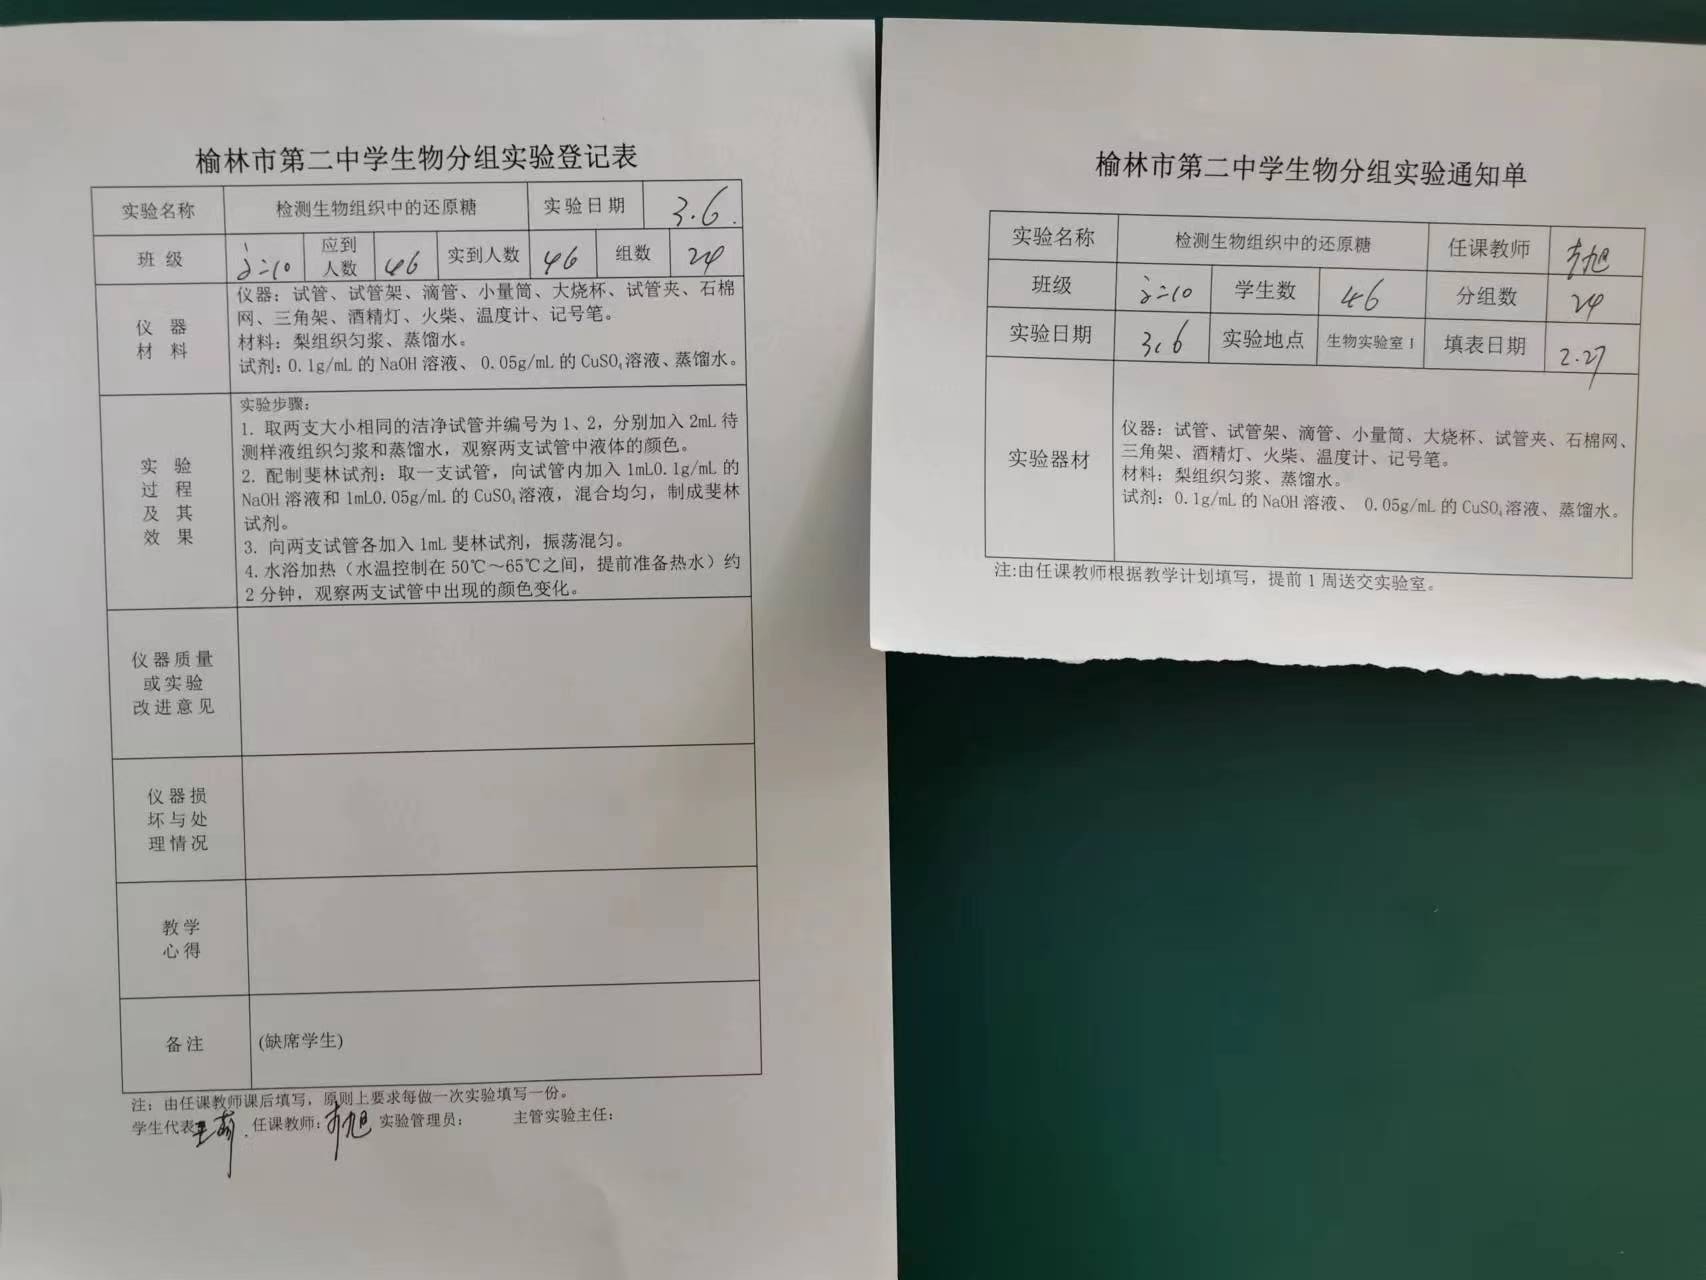 榆林市第二中学生物分组实验登记表
实验名称 检测生物组织中的还原糖 实验日期 3.6.
班级 应到人数 46 实到人数 46 组数 24
仪器材料
仪器：试管、试管架、滴管、小量筒、大烧杯、试管夹、石棉
网、三角架、酒精灯、火柴、温度计、记号笔。
材料：梨组织匀浆、蒸馏水。
试剂：0.1g/mL的NaOH溶液、 0.05g/mL的CuSO₄溶液、蒸馏水。
实验过程及其效果
实验步骤：
1. 取两支大小相同的洁净试管并编号为1、2，分别加入2mL待
测样液组织匀浆和蒸馏水，观察两支试管中液体的颜色。
2. 配制斐林试剂：取一支试管，向试管内加入1mL0.1g/mL的
NaOH溶液和1mL0.05g/mL的CuSO₄溶液，混合均匀，制成斐林
试剂。
3. 向两支试管各加入1mL斐林试剂，振荡混匀。
4.水浴加热（水温控制在50℃～65℃之间，提前准备热水）约
2分钟，观察两支试管中出现的颜色变化。
仪器质量
或实验
改进意见
仪器损
坏与处
理情况
教学
心得
备注 (缺席学生)
注：由任课教师课后填写，原则上要求每做一次实验填写一份。
学生代表 任课教师： 实验管理员： 主管实验主任：
榆林市第二中学生物分组实验通知单
实验名称 检测生物组织中的还原糖 任课教师
班级 学生数 46 分组数 24
实验日期 3.6 实验地点 生物实验室1 填表日期 2.27
实验器材
仪器：试管、试管架、滴管、小量筒、大烧杯、试管夹、石棉网、
三角架、酒精灯、火柴、温度计、记号笔。
材料：梨组织匀浆、蒸馏水。
试剂：0.1g/mL的NaOH溶液、 0.05g/mL的CuSO₄溶液、蒸馏水。
注:由任课教师根据教学计划填写，提前1周送交实验室。